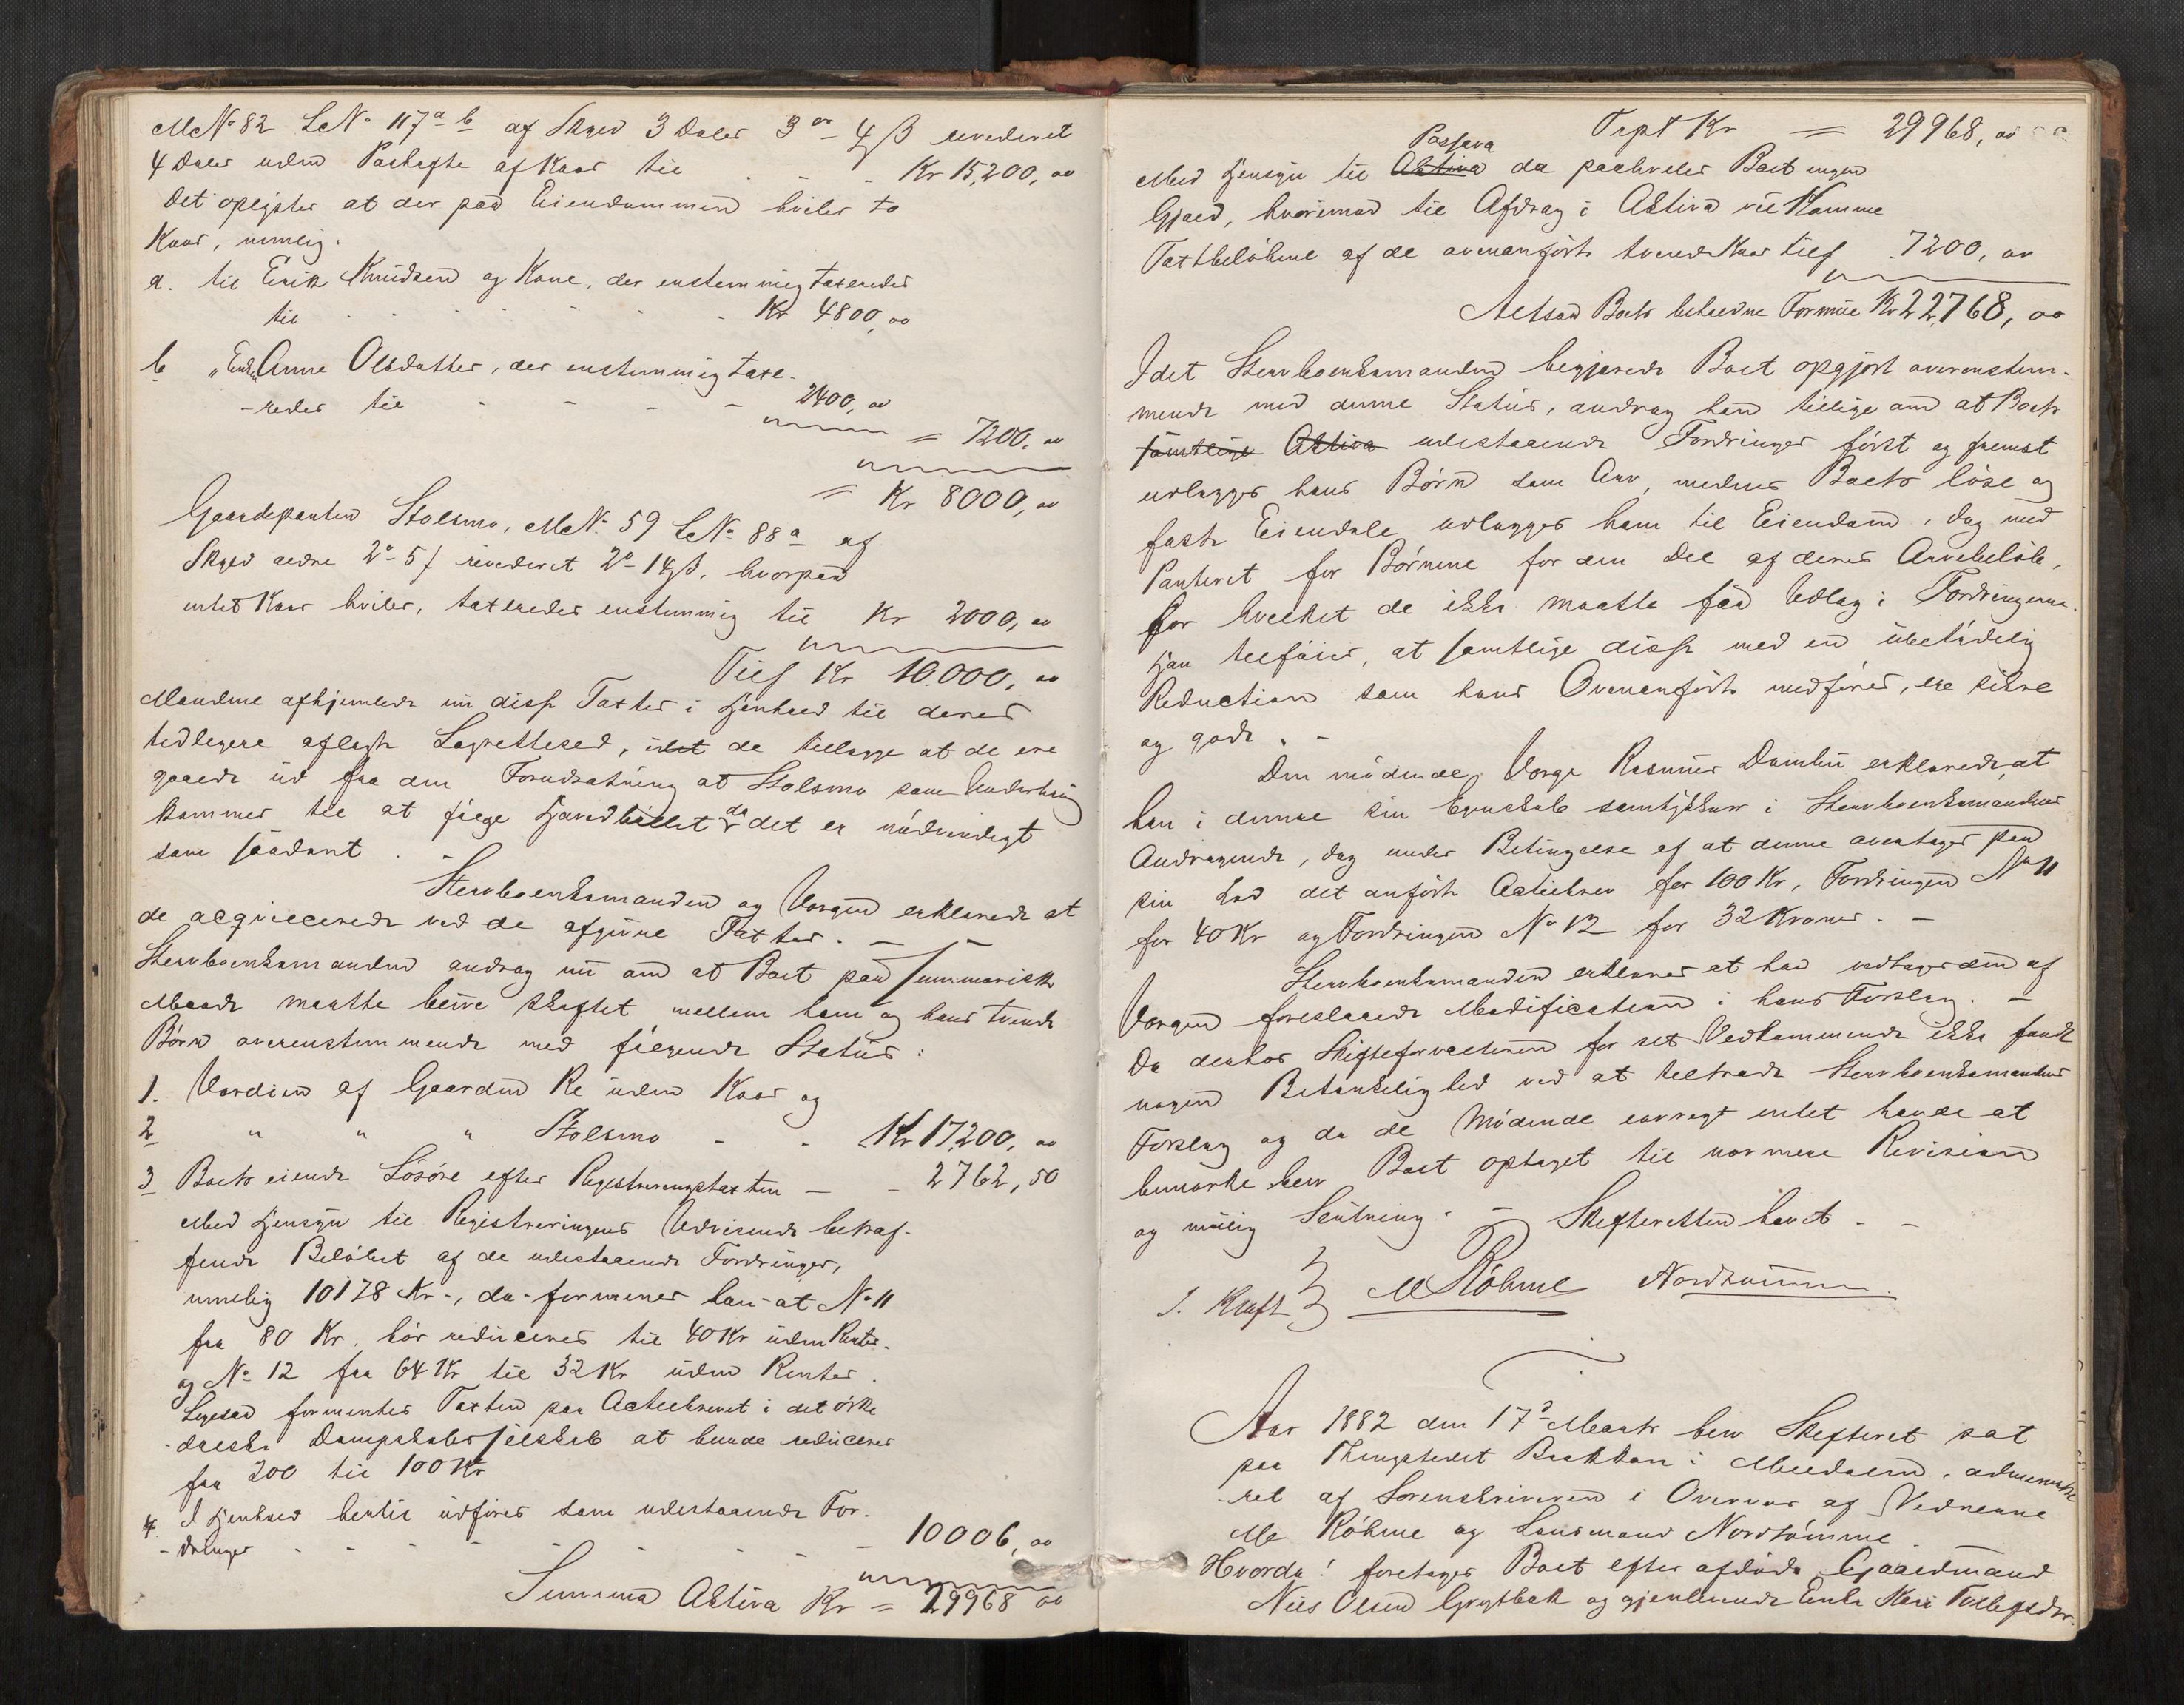 MNo 82 LNo 117 a b af Skyld 3 Daler 3 ort 4 ß revideret
4 Daler uden Paahefte af Kaar til - - - Kr 15,200, oo
Det oplystes at der paa Eiendommen hviler to
Kaar, nemlig:
a. til Erik Knudsen og Kone, der enstemmig taxeredes
til - - - - - Kr 4800, oo
b „ Enken Anne Olsdatter, der enstemmig taxe-
-redes til - - - - 2400, oo
= 7200, oo
= Kr 8000, oo
Gaardeparten Stolsmo, MNo 59 LNo 88 a af
Skyld ældre 2 ort 5 ß revideret 2 ort 14 ß, hvorpaa
intet Kaar hviler, taxeredes enstemmig til Kr 2000, oo
Tils Kr 10.000, oo
Mændene afhjemlede nu disse Taxter i Henhold til deres
tidligere aflagte Lagrettesed, idet de tillagge at de ere
gaaede ud fra den Forudsætning at Stolsmo som Underbrug
kommer til at følge Hovedbøllet da det er nødvendigt
som saadant. -
Stervboenkemanden og Værgen erklærede at
de acqviecerede ved de afgivne Taxter. -
Stervboenkemanden androg nu om at Boet paa summarisk
Maade maatte blive skiftet mellem ham og hans tvende
Børn overenstemmende med følgende Status:
1. Værdien af Gaarden Re uden Kaar og
2 " " " Stolsmo - - Kr 17,200, oo
3 Boets eiende Løsøre efter Registreringstaxten - - 2762, 50
Med Hensyn til Registreringens Udvisende betræf-
fende Beløbet af de udestaaende Fordringer,
nemlig 10178 Kr -, da formener han at No 11
fra 80 Kr. bør reduceres til 40 Kr uden Renter.
og No 12 fra 64 Kr til 32 Kr uden Renter.
Ligesaa formentes Taxten paa Actiebrevet i det ørke
-dalske Dampskibsselskab at burde reduceres
fra 200 til 100 Kr
4. I Henhold hertil udføres som udestaaende For-
- dringer - - - - - - - 10006, oo
Summa Aktiva Kr = 29968 oo
Trpt Kr = 29968, oo
Passiva
Med Hensyn til Aktiva da paahviler Boet ingen
Gjæld, hvorimod til Afdrag i Aktiva vil komme
Taxtbeløbene af de ovenanførte tvende Kaar tils 7200, oo
Altsaa Boets beholdne Formue Kr 22,768, oo
Idet Stervboenkemanden begjærede Boet opgjort overenstem-
mende med denne Status, androg han tillige om at Boets
samtlige Aktiva udestaaende Fordringer først og fremst
udlægges hans Børn som Arv, medens Boets løse og
faste Eiendele udlægges ham til Eiendom, dog med
Panteret for Børnene for den Del af deres Arvebeløb,
for hvilket de ikke maatte faa Udlæg i Fordringerne.
Han tilføier, at samtlige disse med en ubetydelig
Reduction som hans Ovenanførte medfører, ere sikre
og gode. -
Den mødende Værge Rasmus Damli erklærede, at
han i denne sin Egenskab samtykker i Stervboenkemandens
Andragende, dog under Betingelse af at denne overtager paa
sin Lod det anførte Actiebrev for 100 Kr, Fordringen No 11
for 40 Kr og Fordringen No 12 for 32 Kroner. -
Stervboenkemanden erklærer at han vedtager den af
Værgen foreslaaede Modification i hans Forslag. -
Da derhos Skifteforvalteren for sit Vedkommende ikke fandt
nogen Betænkelighed ved at tiltræde Stervboenkemandens
Forslag og da de Mødende iøvrigt intet havde at
bemærke blev Boet optaget til nærmere Revision
og mulig Slutning. - Skifteretten hævet. -
J. Kraft M Røhme Nordtømme
Aar 1882 den 17de Marts blev Skifteret sat
paa Thingstedet Brækken i Meldalen, administre
-ret af Sorenskriveren i Overvær af Vidnerne
M Røhme og Lensmand Nordtømme
Hvorda: foretages Boet efter afdøde Gaardmand
Nils Olsen Grytbak og gjenlevende Enke Kari Tollefsdtr.